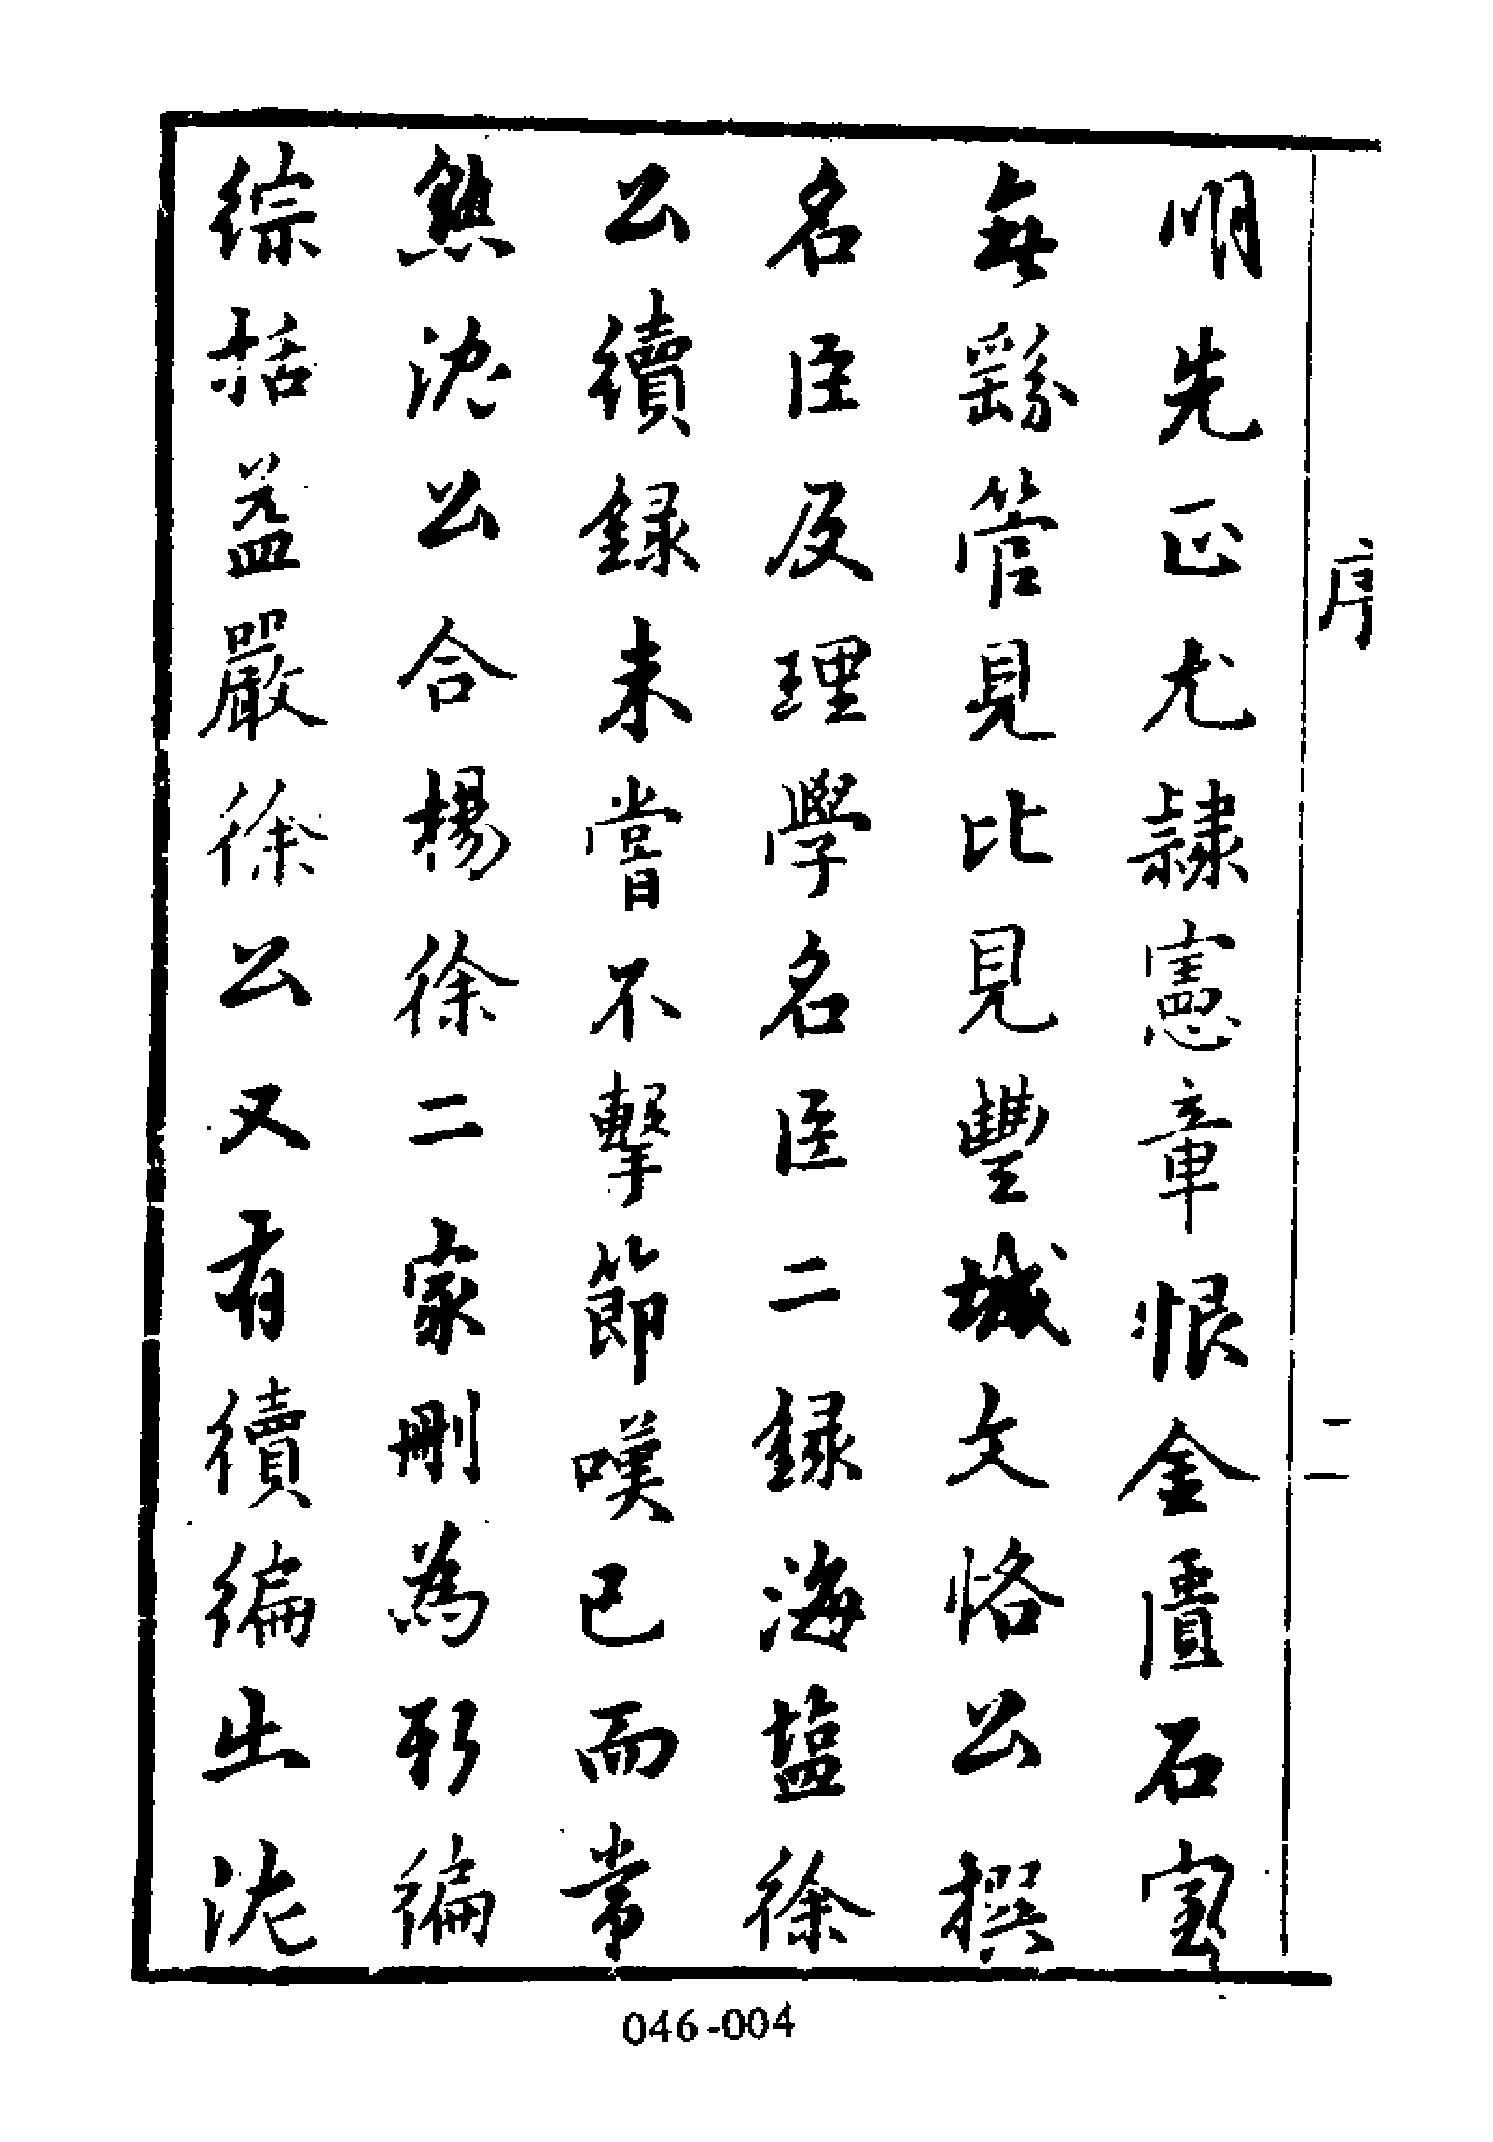 明先正尤隷憲章恨金匱石室
無繇管見比見豐城文恪公撰
名臣及理學名臣二録海塩徐
公續録未嘗不擊節嘆已而常
熟沈公合楊徐二家刪為新編
綜括葢嚴徐公又有續編出沈
序
二
046-004